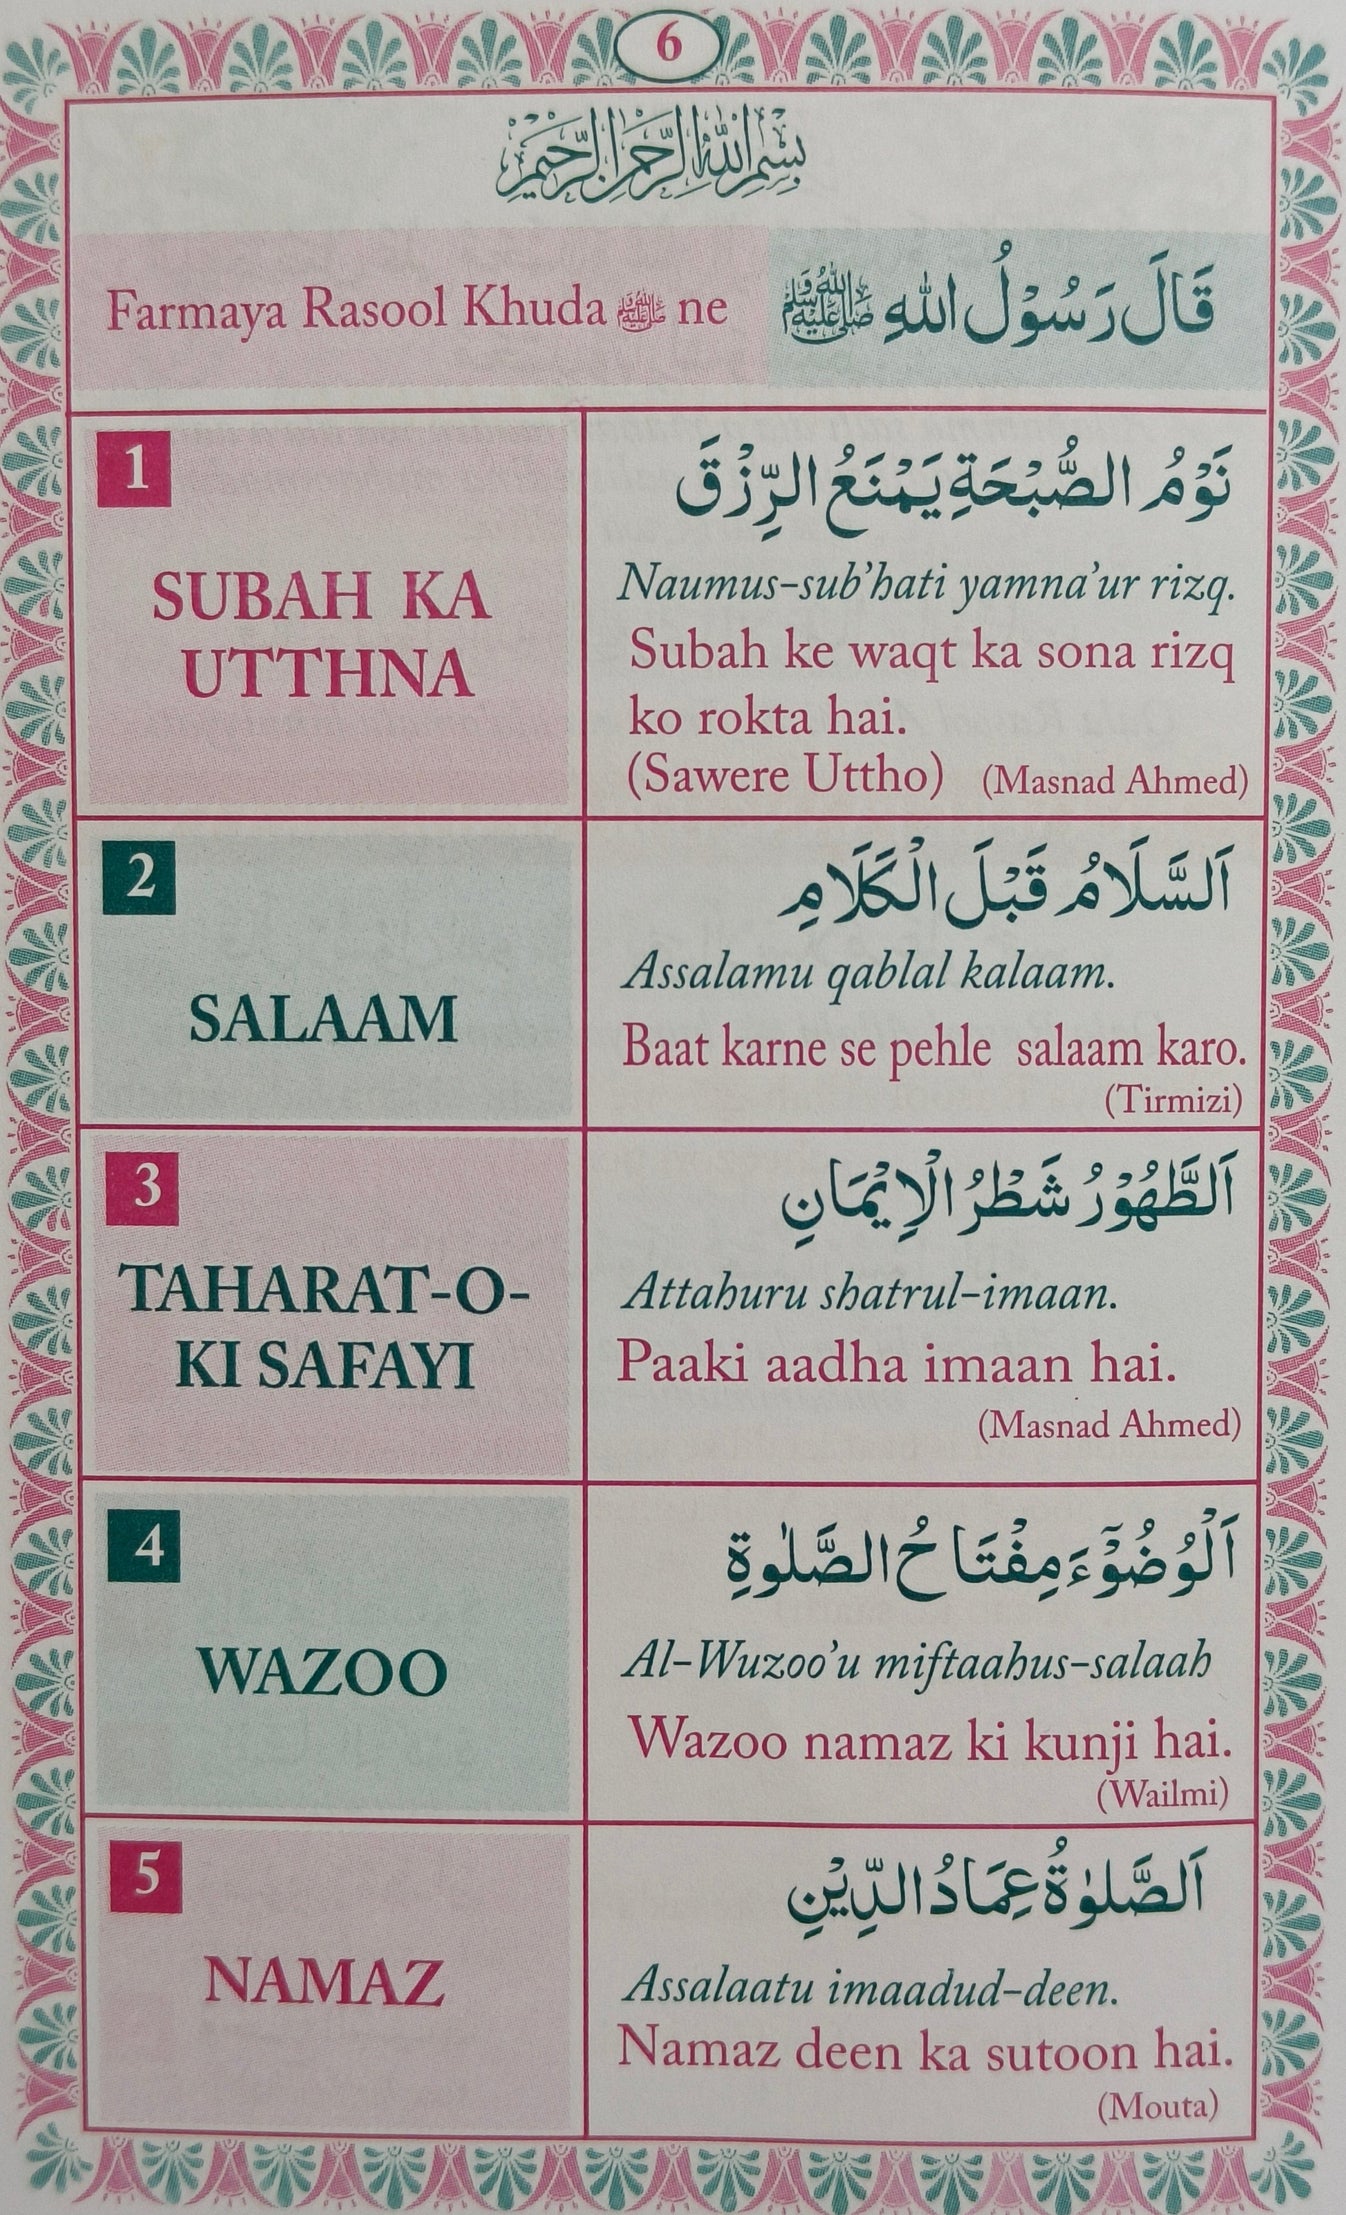 6
بِسْمِ اللهِ الرَّحْمٰنِ الرَّحِيْمِ
Farmaya Rasool Khuda ﷺ ne
قَالَ رَسُوْلُ اللهِ ﷺ
1
SUBAH KA
UTTHNA
نَوْمُ الصُّبْحَةِ يَمْنَعُ الرِّزْقَ
Naumus-sub’hati yamna’ur rizq.
Subah ke waqt ka sona rizq
ko rokta hai.
(Sawere Uttho) (Masnad Ahmed)
2
SALAAM
اَلسَّلَامُ قَبْلَ الْكَلَامِ
Assalamu qablal kalaam.
Baat karne se pehle salaam karo.
(Tirmizi)
3
TAHARAT-O-
KI SAFAYI
اَلطَّهُوْرُ شَطْرُ الْاِيْمَانِ
Attahuru shatrul-imaan.
Paaki aadha imaan hai.
(Masnad Ahmed)
4
WAZOO
اَلْوُضُوْٓءَ مِفْتَاحُ الصَّلٰوةِ
Al-Wuzoo’u miftaahus-salaah
Wazoo namaz ki kunji hai.
(Wailmi)
5
NAMAZ
اَلصَّلٰوةُ عِمَادُ الدِّيْنِ
Assalaatu imaadud-deen.
Namaz deen ka sutoon hai.
(Mouta)